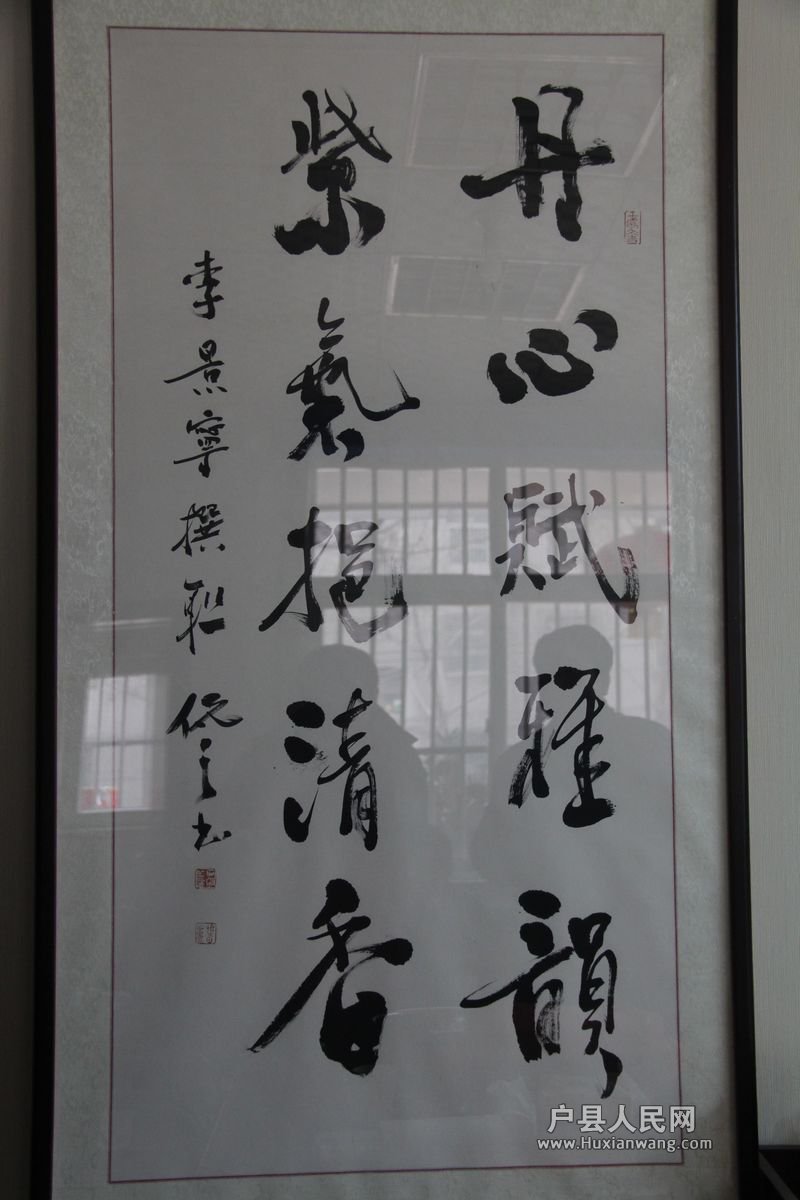 丹心賦雅韻
紫氣挹清香
李景寧撰聯 侃之書
户县人民网
www.Huxianwang.com